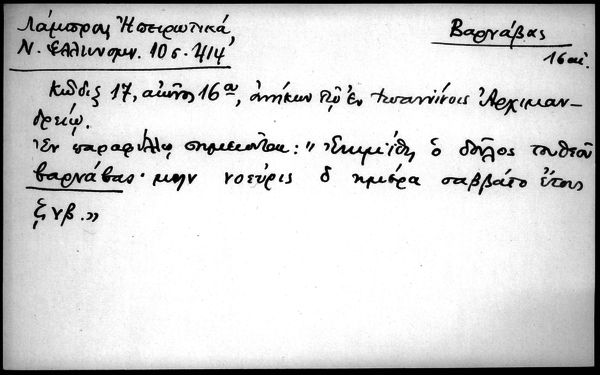 Λάμπρου Ἠπειρωτικά,
Ν. Ἑλληνομν. 10 σ. 414
Βαρνάβας
16 αἰ.
Κῶδιξ 17, αἰῶνος 16ου, ἀνήκων τῷ ἐν Ἰωαννίνοις Ἀρχιμαν-
δρείῳ.
Ἐν παραφύλλῳ σημειοῦται: "Ἐκιμίθη ὁ δοῦλος του θεοῦ
βαρνάβας· μην νοεύρις δ ημέρα σαββάτο ἔτους
ζνβ."